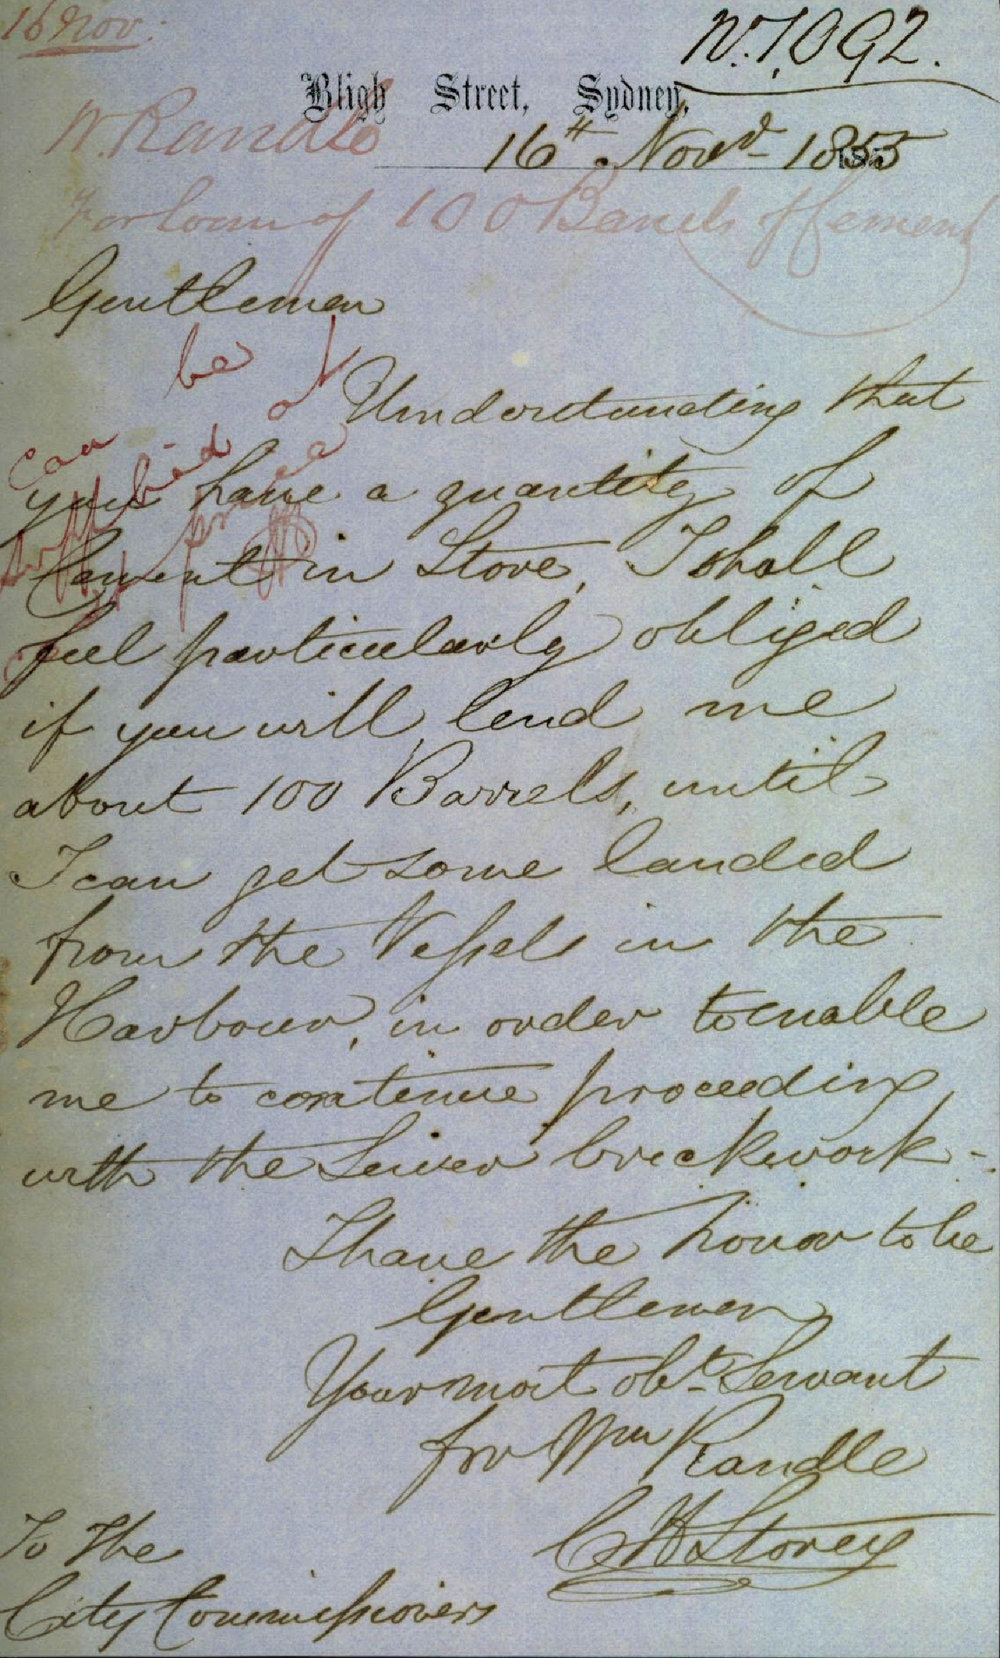 16 Nov.
No. 1,092.
Bligh Street, Sydney,
W. Randle
16th. Novr. 1855
For loan of 100 Barrels of Cement
Gentlemen
Understanding that
you have a quantity of
Cement in Store, I shall
feel particularly obliged
if you will lend me
about 100 Barrels, until
I can get some landed
from the Vessels in the
Harbour, in order to enable
me to continue proceeding
with the Sewer brickwork -.
I have the honor to be
Gentlemen
Your most obt. Servant
for Wm Randle
C H Storey
To The
City Commissioners
can be
supplied at
price